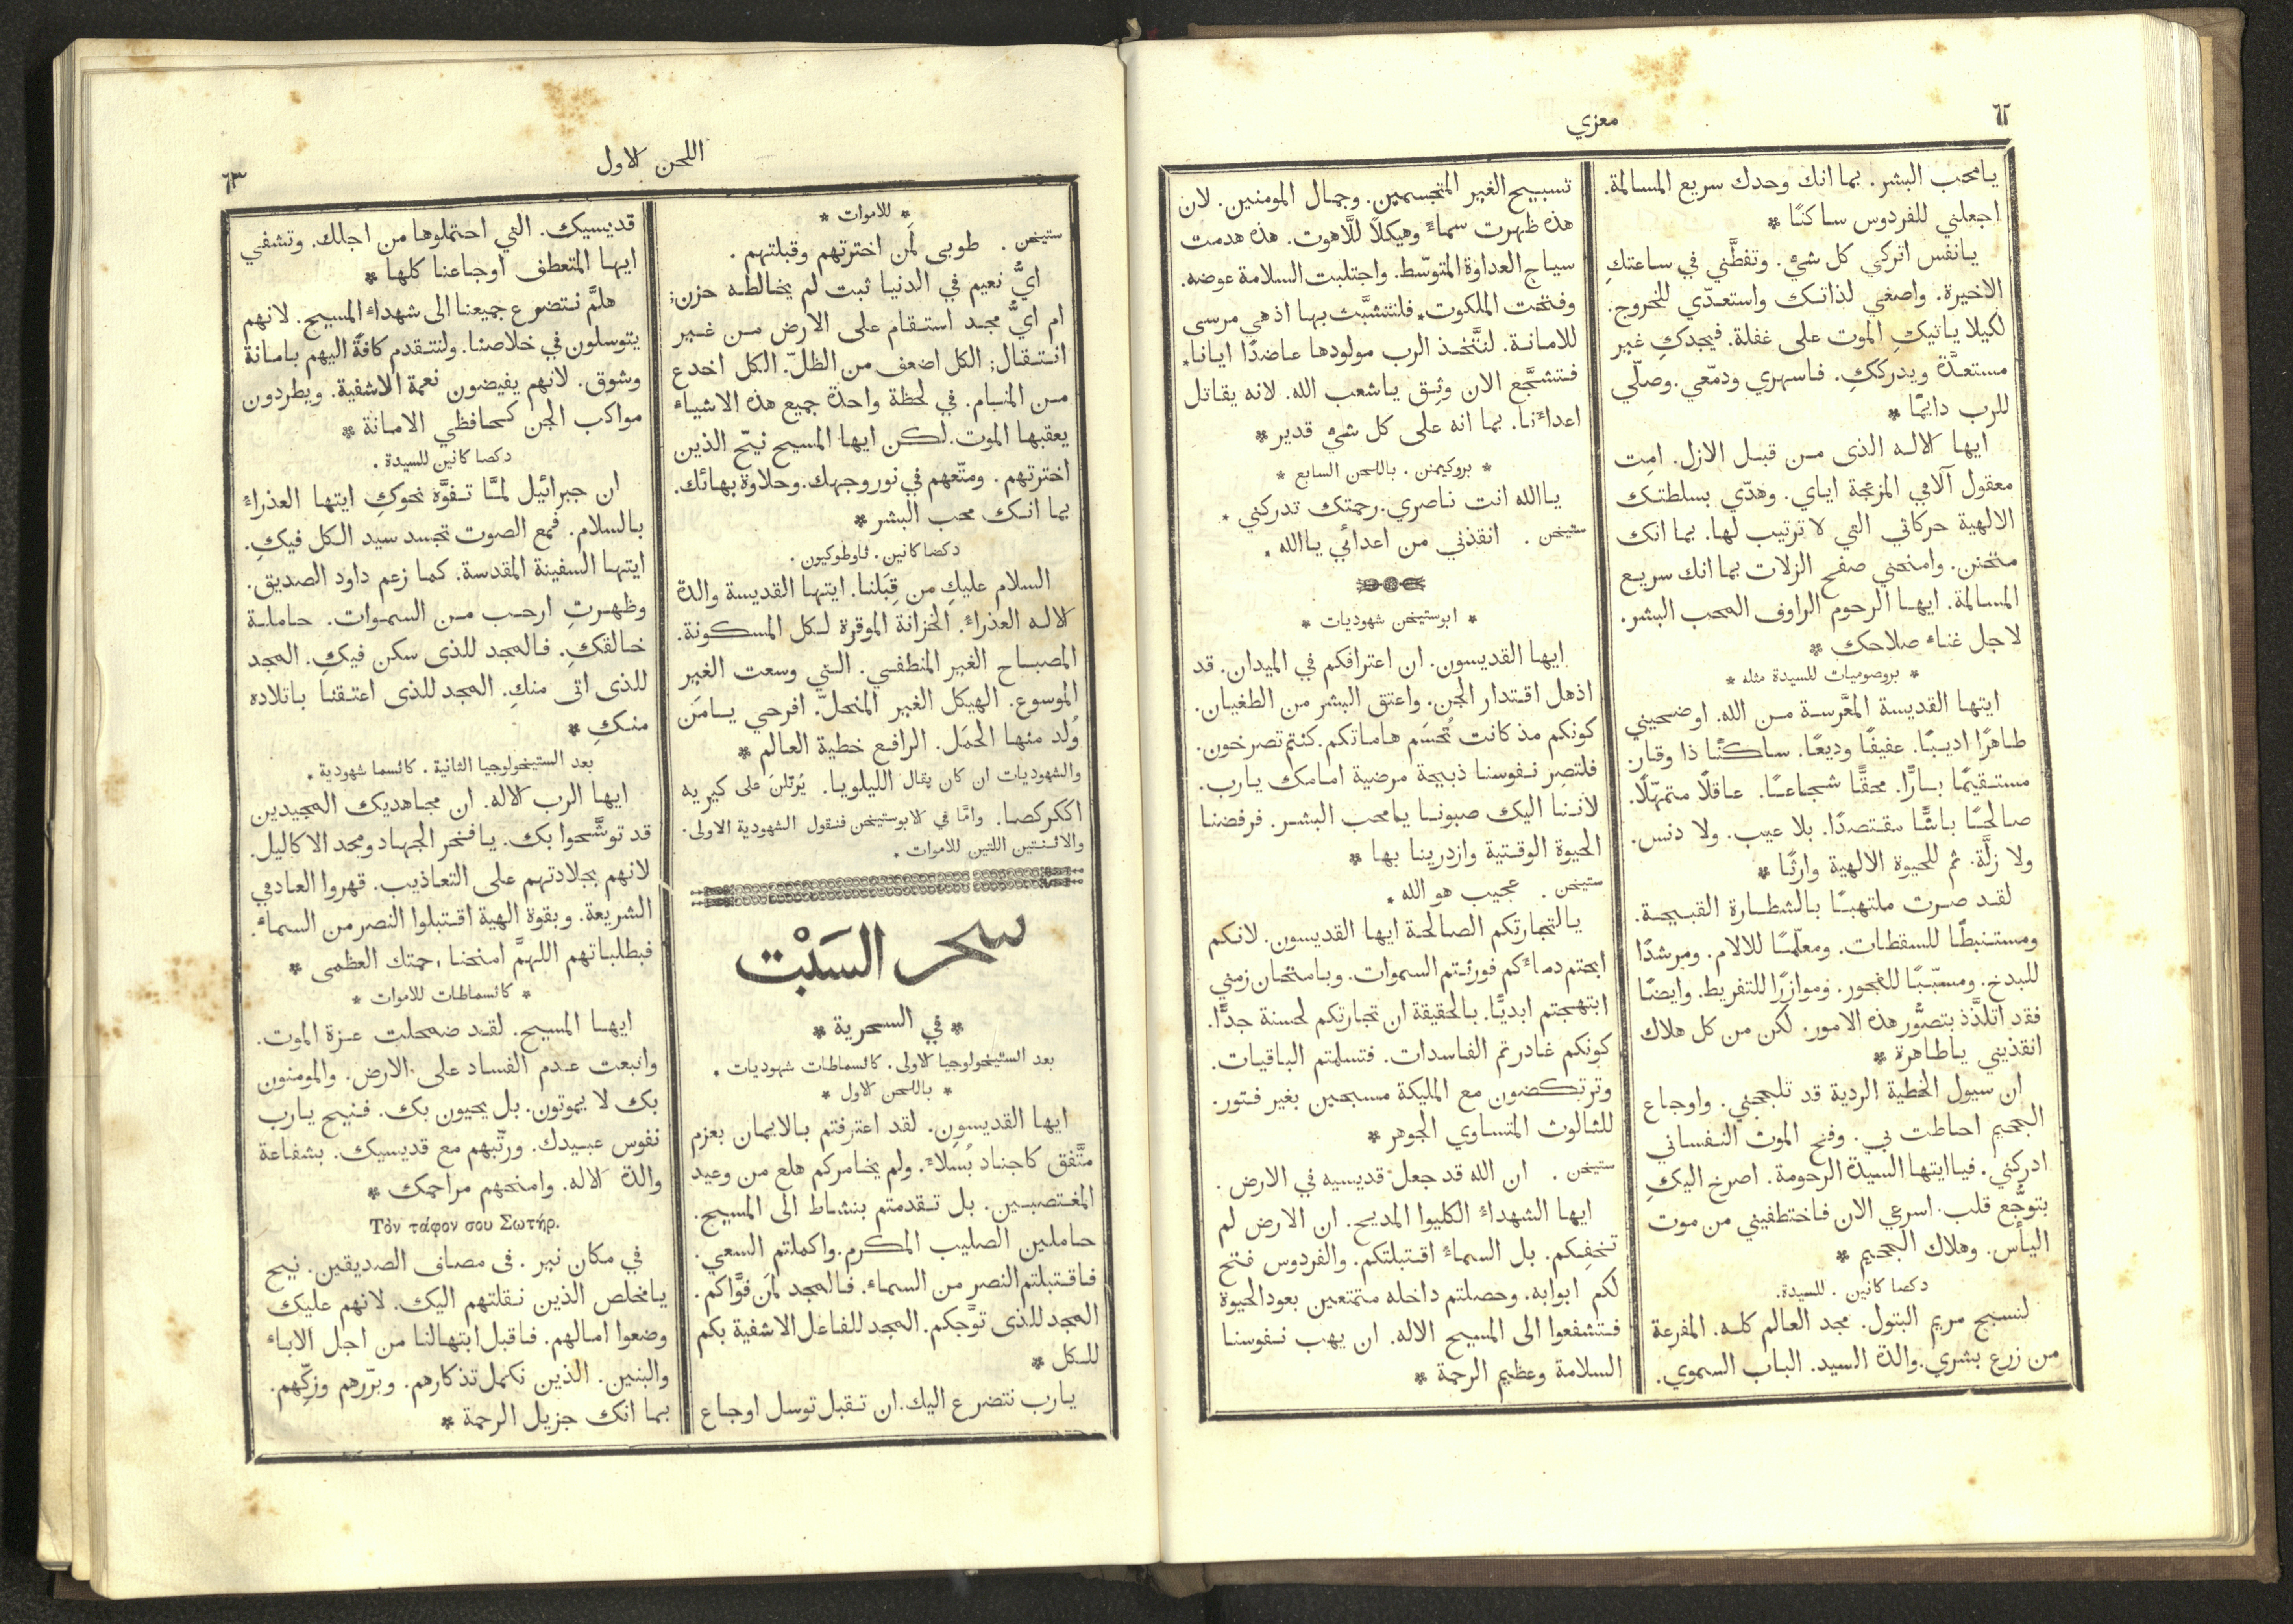 ٦٢
معزي
يامحب البشر. بما انك وحدك سريع المسالمة.
اجعلني للفردوس ساكنًا *
يانفس اتركي كل شيْ. وتفطَّني في ساعتكِ
الاخيرة. واصغي لذاتك واستعدّي للخروج.
لكيلا ياتيكِ الموت على غفلة. فيجدكِ غير
مستعدَّة ويدرككِ. فاسهري ودمّعي. وصلّي
للرب دايمًا *
ايها الاله الذى من قبل الازل. امِت
معقول آلامي المزعجة اياي. وهدّي بسلطتك
الالهية حركاتي التي لا ترتيب لها. بما انك
متحنن. وامنحني صفح الزلات بما انك سريع
المسالمة. ايها الرحوم الراوف المحب البشر.
لاجل غناء صلاحك *
* بروصوميات للسيدة مثله *
ايتها القديسة المعَّرسة من الله. اوضحيني
طاهرًا اديبًا. عفيفًا وديعًا. ساكنًا ذا وقار.
مستقيمًا بارًّا. محقًّا شجاعًا. عاقلًا متمهّلًا.
صالحًا باشًّا مقتصدًا. بلا عيب. ولا دنس.
ولا زلَّة. ثم للحيوة الالهية وارثًا *
لقد صرت ملتهبًا بالشطارة القبيحة.
ومستنبطًا للسقطات. ومعلّمًا للالام. ومرشدًا
للبدخ. ومسبّبًا للفجور. وموازرًا للتفريط. وايضًا
فقد اتلذَّذ بتصوُّر هذه الامور. لكن من كل هلاك
انقذيني ياطاهرة *
ان سيول الخطية الردية قد تلججني. واوجاع
الجحيم احاطت بي. وفخ الموت النفساني
ادركني. فيا ايتها السيدة الرحومة. اصرخ اليكِ
بتوجُّع قلب. اسرعي الان فاختطفيني من موت
اليأس. وهلاك الجحيم *
دكصا كانين . للسيدة.
لنسبح مريم البتول. مجد العالم كله. المفرعة
من زرع بشري. والدة السيد. الباب السموي.
تسبيح الغير المتجسمين. وجمال المومنين. لان
هذه ظهرت سماءً وهيكلًا للَّاهوت. هذه هدمت
سياج العداوة المتوسّط. واجتلبت السلامة عوضه.
وفتحت الملكوت* فلنتشبَّث بها اذ هي مرسى
للامانة. لنتَّخذ الرب مولودها عاضدًا ايانا*
فتشجَّع الان وثِق ياشعب الله. لانه يقاتل
اعداءَنا. بما انه على كل شيْ قدير *
* بروكيمنن . باللحن السابع *
ياالله انت ناصري. رحمتك تدركني *
ستيخن . انقذني من اعدائي ياالله *
* ابوستيخن شهوديات *
ايها القديسون. ان اعترافكم في الميدان. قد
اذهل اقتدار الجن. واعتق البشر من الطغيان.
كونكم مذ كانت تُحسَم هاماتكم. كنتم تصرخون.
فلتصِر نفوسنا ذبيحة مرضية امامك يارب.
لاننا اليك صبونا يامحب البشر. فرفضنا
الحيوة الوقتية وازدرينا بها *
ستيخن . عجيب هو الله *
يالتجارتكم الصالحة ايها القديسون. لانكم
ابحتم دماءكم فورثتم السموات. وبامتحان زمني
ابتهجتم ابديًّا. بالحقيقة ان تجارتكم لحسنة جدًّا.
كونكم غادرتم الفاسدات. فتسلمتم الباقيات.
وترتكضون مع المليكة مسبحين بغير فتور.
للثالوث المتساوي الجوهر *
ستيخن . ان الله قد جعل قديسيه في الارض .
ايها الشهداءُ الكليوا المديح. ان الارض لم
تخفِكم. بل السماءُ اقتبلتكم. والفردوس فتح
لكم ابوابه. وحصلتم داخله متمتعين بعود الحيوة
فتشفعوا الى المسيح الاله. ان يهب نفوسنا
السلامة وعظيم الرحمة *
اللحن الاول
٦٣
* للاموات *
ستيخن . طوبى لِمَن اخترتهم وقبلتهم .
ايُّ نعيم في الدنيا ثبت لم يخالطه حزن;
ام ايُّ مجد استقام على الارض من غير
انتقال; الكل اضعف من الظلّ. الكل اخدع
من المنام. في لحظة واحدة جميع هذه الاشياء
يعقبها الموت. لكن ايها المسيح نيّح الذين
اخترتهم . ومتّعهم في نور وجهك. وحلاوة بهائك.
بما انك محب البشر *
دكصا كانين . ثاوطوكيون .
السلام عليكِ من قِبَلنا. ايتها القديسة والدة
الاله العذراءُ. الخزانة الموقرة لكل المسكونة.
المصباح الغير المنطفي. التي وسعت الغير
الموسوع. الهيكل الغير المنحلّ. افرحي يامَن
وُلد منها الحمَل. الرافع خطية العالم *
والشهوديات ان كان يقال الليلويا. يُرتلن على كيريه
اككركصا. وامَّا في الابوستيخن فنقول الشهودية الاولى.
والاثنتين اللتين للاموات .
سحر السَبْت
* في السحرية *
بعد الستيخولوجيا الاولى. كاثسماطات شهوديات .
* باللحن الاول *
ايها القديسون. لقد اعترفتم بالايمان بعزم
متَّفق كاجناد بُسلاءً. ولم يخامركم هلع من وعيد
المغتصبين. بل تقدمتم بنشاط الى المسيح.
حاملين الصليب المكرم. واكملتم السعي.
فاقتبلتم النصر من السماء. فالمجد لمَن قوَّاكم.
المجد للذى توَّجكم. المجد للفاعل الاشفية بكم
للكل *
يارب نتضرع اليك. ان تقبل توسل اوجاع
قديسيك. التي احتملوها من اجلك. وتشفي
ايها المتعطف اوجاعنا كلها *
هلمَّ نتضرع جميعنا الى شهداءِ المسيح. لانهم
يتوسلون في خلاصنا. ولنتقدم كافةً اليهم بامانة
وشوق. لانهم يفيضون نعمة الاشفية. ويطردون
مواكب الجن كحافظي الامانة *
دكصا كانين للسيدة .
ان جبرائيل لمَّا تفوَّه نحوكِ ايتها العذراءُ
بالسلام. فمع الصوت تجسد سيد الكل فيكِ.
ايتها السفينة المقدسة. كما زعم داود الصديق.
وظهرتِ ارحب من السموات. حاملة
خالقكِ. فالمجد للذى سكن فيكِ. المجد
للذى اتى منكِ. المجد للذى اعتقنا باتلاده
منكِ *
بعد الستيخولوجيا الثانية . كاثسما شهودية .
ايها الرب الاله. ان مجاهديك المجيدين
قد توشَّحوا بك. يافخر الجهاد ومجد الاكاليل.
لانهم بجلادتهم على التعاذيب. قهروا العادمي
الشريعة. وبقوة الهية اقتبلوا النصر من السماءِ.
فبطلباتهم اللهمَّ امنحنا رحمتك العظمى *
* كاثسماطات للاموات *
ايها المسيح. لقد ضمحلت عزة الموت.
وانبعث عدم الفساد على الارض. والمومنون
بك لا يموتون. بل يحيون بك. فنيح يارب
نفوس عبيدك. ورتّبهم مع قديسيك. بشفاعة
والدة الاله. وامنحهم مراحمك *
Τὸν τάφον σου Σωτήρ.
في مكان نير . فى مصاف الصديقين. نيح
يامخلص الذين نقلتهم اليك. لانهم عليك
وضعوا امالهم. فاقبل ابتهالنا من اجل الاباء
والبنين. الذين نكمل تذكارهم. وبرّرهم وزكِّهم.
بما انك جزيل الرحمة *